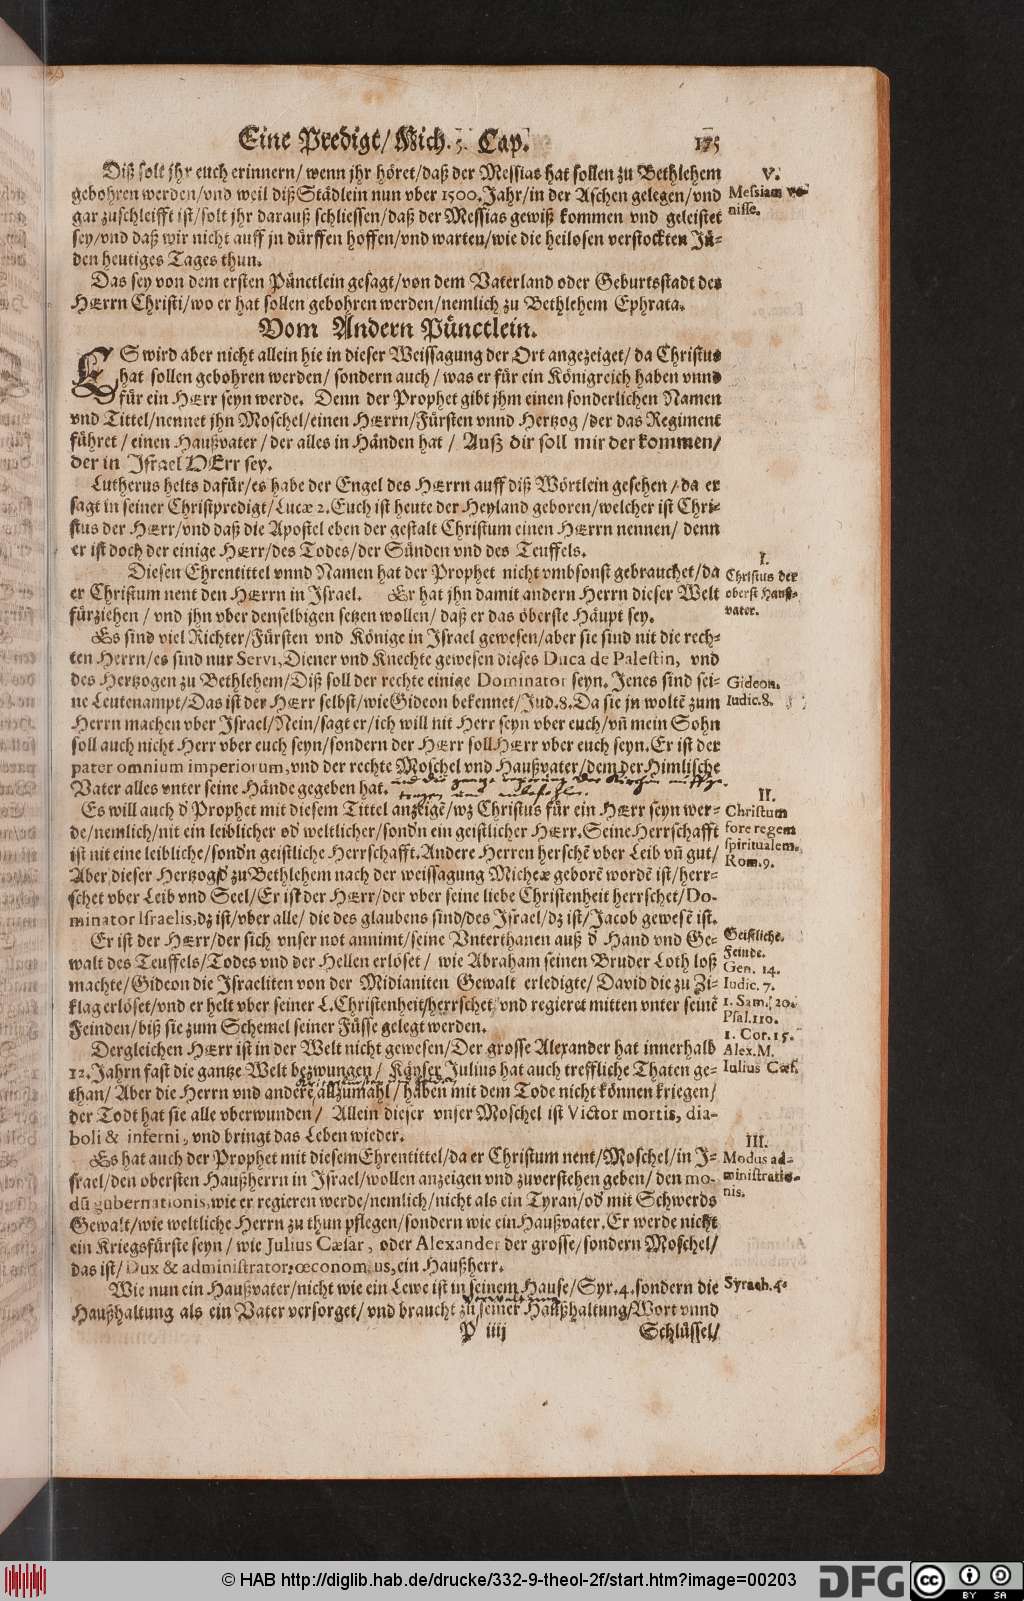 Eine Predigt/ Mich. 5. Cap. 175
Diß solt jhr euch erinnern/ wenn jhr höret/ daß der Messias hat sollen zu Bethlehem
gebohren werden/ vnd weil diß Städlein nun vber 1500. Jahr/ in der Aschen gelegen/ vnd
gar zuschleifft ist/ solt jhr darauß schliessen/ daß der Messias gewiß kommen vnd geleistet
sey/ vnd daß wir nicht auff jn dürffen hoffen/ vnd warten/ wie die heilosen verstockten Jü-
den heutiges Tages thun.
V.
Messiam ve-
nisse.
Das sey von dem ersten Pünctlein gesagt/ von dem Vaterland oder Geburtsstadt des
HErrn Christi/ wo er hat sollen gebohren werden/ nemlich zu Bethlehem Ephrata.
Vom Andern Pünctlein.
ES wird aber nicht allein hie in dieser Weissagung der Ort angezeiget/ da Christus
hat sollen gebohren werden/ sondern auch/ was er für ein Königreich haben vnnd
für ein HErr seyn werde. Denn der Prophet gibt jhm einen sonderlichen Namen
vnd Tittel/ nennet jhn Moschel/ einen HErrn/ Fürsten vnnd Hertzog/ der das Regiment
führet/ einen Haußvater/ der alles in Händen hat/ Auß dir soll mir der kommen/
der in Jsrael HErr sey.
Lutherus helts dafür/ es habe der Engel des HErrn auff diß Wörtlein gesehen/ da er
sagt in seiner Christpredigt/ Lucæ 2. Euch ist heute der Heyland geboren/ welcher ist Chri-
stus der HErr/ vnd daß die Apostel eben der gestalt Christum einen HErrn nennen/ denn
er ist doch der einige HErr/ des Todes/ der Sünden vnd des Teuffels.
Diesen Ehrentittel vnnd Namen hat der Prophet nicht vmbsonst gebrauchet/ da
er Christum nent den HErrn in Jsrael. Er hat jhn damit andern Herrn dieser Welt
fürziehen/ vnd jhn vber denselbigen setzen wollen/ daß er das öberste Häupt sey.
I.
Christus der
oberst Hauß-
vater.
Es sind viel Richter/ Fürsten vnd Könige in Jsrael gewesen/ aber sie sind nit die rech-
ten Herrn/ es sind nur Servi, Diener vnd Knechte gewesen dieses Duca de Palestin, vnd
des Hertzogen zu Bethlehem/ Diß soll der rechte einige Dominator seyn. Jenes sind sei-
ne Leutenampt/ Das ist der HErr selbst/ wie Gideon bekennet/ Jud. 8. Da sie jn woltē zum
Herrn machen vber Jsrael/ Nein/ sagt er/ ich will nit Herr seyn vber euch/ vñ mein Sohn
soll auch nicht Herr vber euch seyn/ sondern der HErr soll HErr vber euch seyn. Er ist der
pater omnium imperiorum, vnd der rechte Moschel vnd Haußvater/ dem der Himlische
Vater alles vnter seine Hände gegeben hat.
Gideon.
Iudic. 8.
Es will auch d̃ Prophet mit diesem Tittel anzeigē/ wz Christus für ein HErr seyn wer-
de/ nemlich/ nit ein leiblicher od̃ weltlicher/ sond̃n ein geistlicher HErr. Seine Herrschafft
ist nit eine leibliche/ sond̃n geistliche Herrschafft. Andere Herren herschē vber Leib vñ gut/
Aber dieser Hertzog zu Bethlehem nach der weissagung Micheæ geborē wordē ist/ herr-
schet vber Leib vnd Seel/ Er ist der HErr/ der vber seine liebe Christenheit herrschet/ Do-
minator Israelis, dz ist/ vber alle/ die des glaubens sind/ des Jsrael/ dz ist/ Jacob gewesē ist.
II.
Christum
fore regem
spiritualem.
Rom. 9.
Er ist der HErr/ der sich vnser not annimt/ seine Vnterthanen auß d̃ Hand vnd Ge-
walt des Teuffels/ Todes vnd der Hellen erlöset/ wie Abraham seinen Bruder Loth loß
machte/ Gideon die Israeliten von der Midianiten Gewalt erledigte/ David die zu Zi-
klag erlöset/ vnd er helt vber seiner L. Christenheit/ herrschet/ vnd regieret mitten vnter seinē
Feinden/ biß sie zum Schemel seiner Füsse gelegt werden.
Geistliche.
Feinde.
Gen. 14.
Iudic. 7.
1. Sam. 20.
Psal. 110.
1. Cor. 15.
Dergleichen HErr ist in der Welt nicht gewesen/ Der grosse Alexander hat innerhalb
12. Jahrn fast die gantze Welt bezwungen/ Käyser Julius hat auch treffliche Thaten ge-
than/ Aber die Herrn vnd anderē allzumahl/ haben mit dem Tode nicht können kriegen/
der Todt hat sie alle vberwunden/ Allein dieser vnser Moschel ist Victor mortis, dia-
boli & inferni, vnd bringt das Leben wieder.
Alex. M.
Iulius Cæs.
Es hat auch der Prophet mit diesem Ehrentittel/ da er Christum nent/ Moschel/ in J-
srael/ den obersten Haußherrn in Jsrael/ wollen anzeigen vnd zuverstehen geben/ den mo-
dũ gubernationis, wie er regieren werde/ nemlich/ nicht als ein Tyran/ od̃ mit Schwerds
Gewalt/ wie weltliche Herrn zu thun pflegen/ sondern wie ein Haußvater. Er werde nicht
ein Kriegsfürste seyn/ wie Julius Cæsar, oder Alexander der grosse/ sondern Moschel/
das ist/ Dux & administrator, œconomus, ein Haußherr.
III.
Modus ad-
ministratio-
nis.
Wie nun ein Haußvater/ nicht wie ein Lewe ist in seinem Hause/ Syr. 4. sondern die
Haußhaltung als ein Vater versorget/ vnd braucht zu seiner Haußhaltung/ Wort vnnd
Syrach. 4.
P iiij Schlüssel/
© HAB http://diglib.hab.de/drucke/332-9-theol-2f/start.htm?image=00203
DFG
cc BY SA